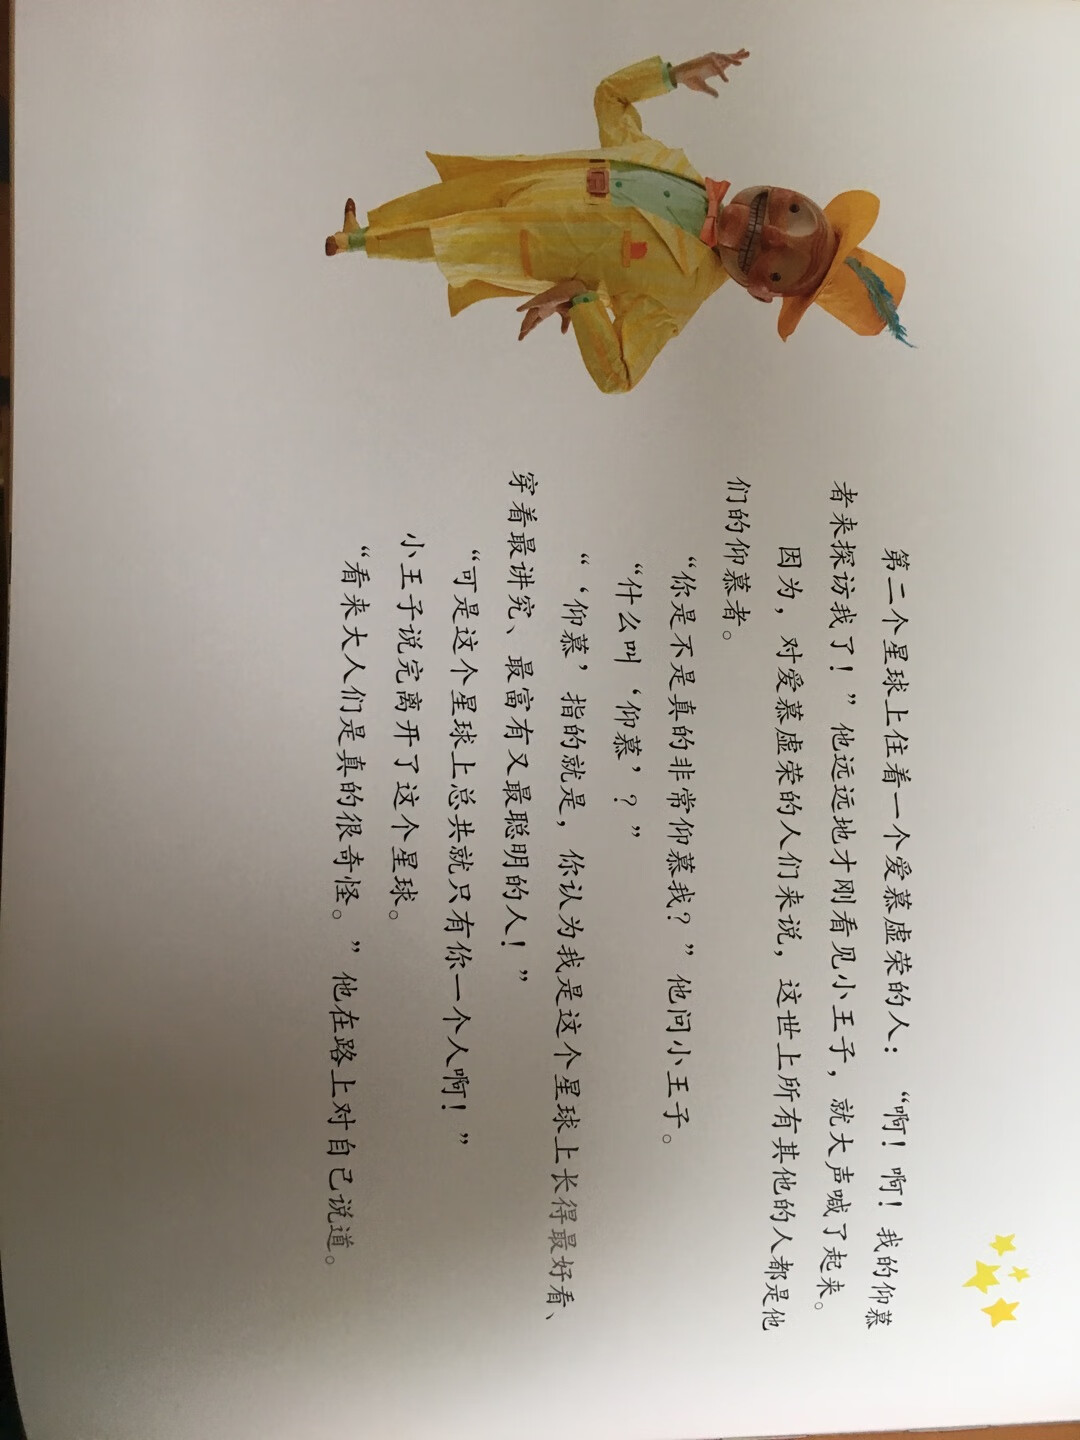 第二个星球上住着一个爱慕虚荣的人：“啊！啊！我的仰慕
者来探访我了！”他远远地才刚看见小王子，就大声喊了起来。
因为，对爱慕虚荣的人们来说，这世上所有其他的人都是他
们的仰慕者。
“你是不是真的非常仰慕我？”他问小王子。
“什么叫‘仰慕’？”
“‘仰慕’指的就是，你认为我是这个星球上长得最好看、
穿着最讲究、最富有又最聪明的人！”
“可是这个星球上总共就只有你一个人啊！”
小王子说完离开了这个星球。
“看来大人们是真的很奇怪。”他在路上对自己说道。